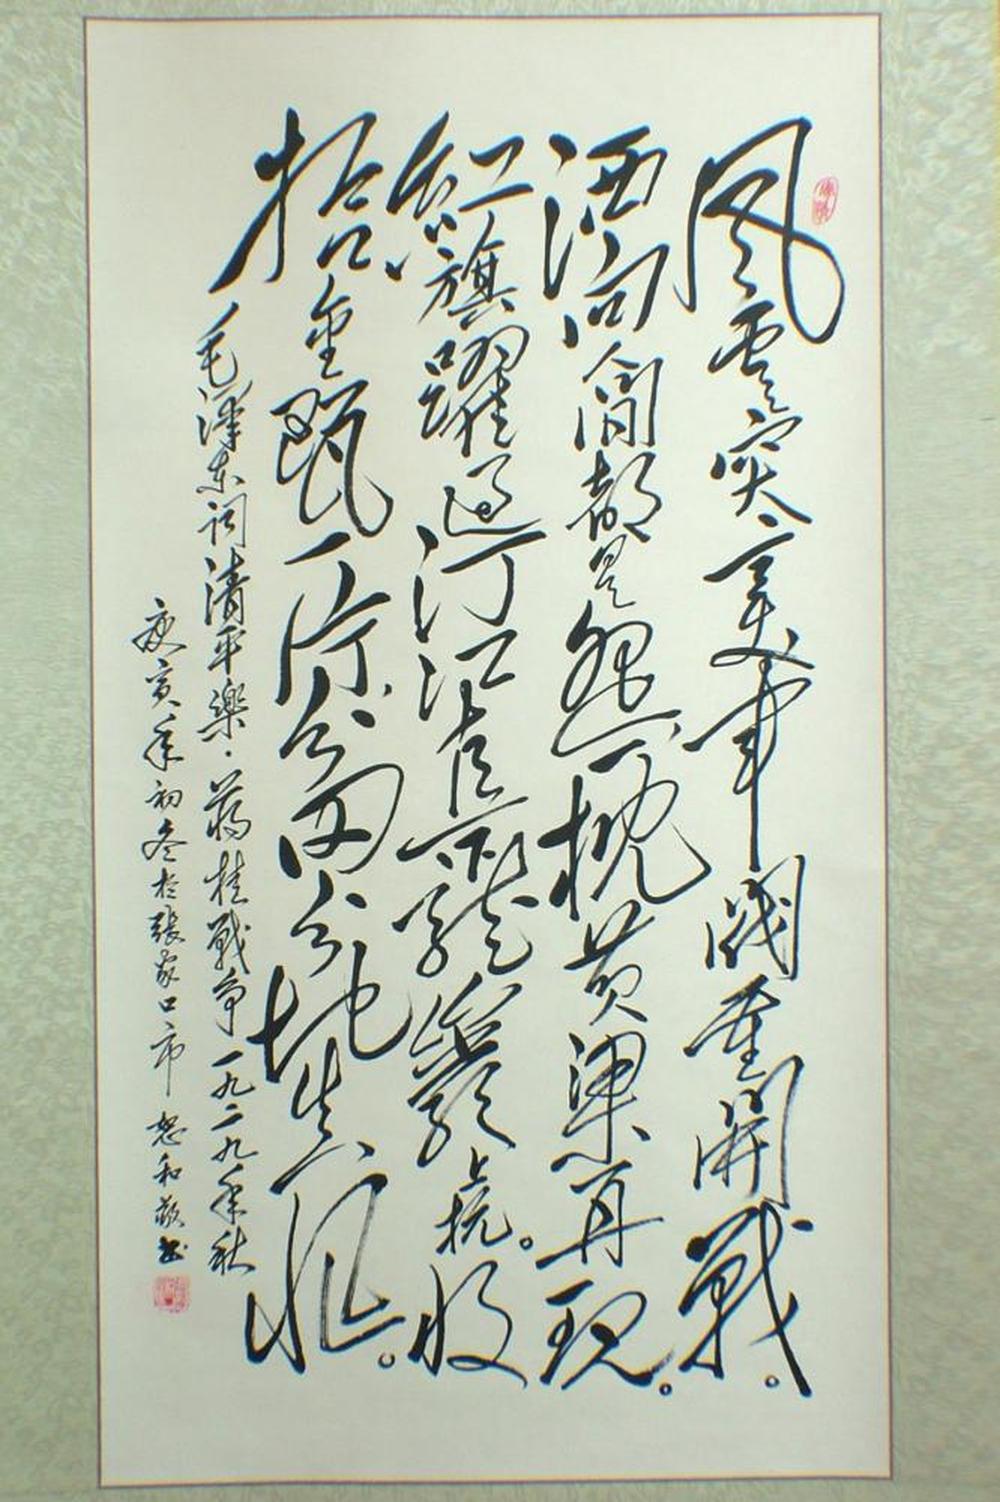 风雲突变军阀重開戰。
洒向人間都是怨一枕黄粱再现。
红旗躍過汀江直下龍巖上杭。收
拾金甌一片分田分地真忙。
毛澤东词清平樂·蒋桂戰争一九二九年秋
庚寅年初冬於張家口市 和敬书